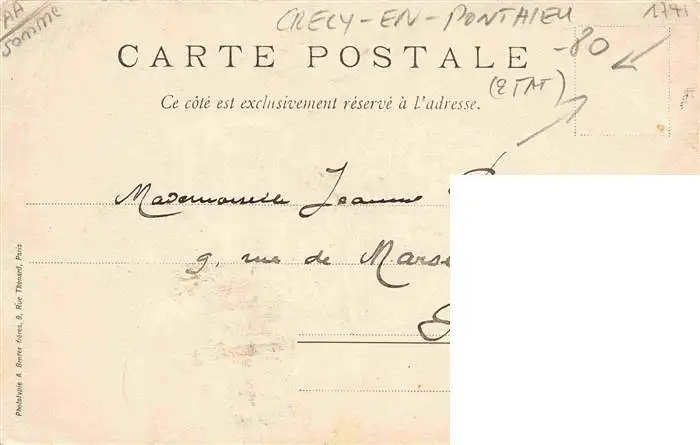 AA
Somme
CRECY-EN-PONTHIEU
1741
-80
CARTE POSTALE
(ETAT)
Ce côté est exclusivement réservé à l'adresse.
Mademoiselle Jeanne
9, rue de
Phototypie A. Breger frères, 9, Rue Thénard, Paris